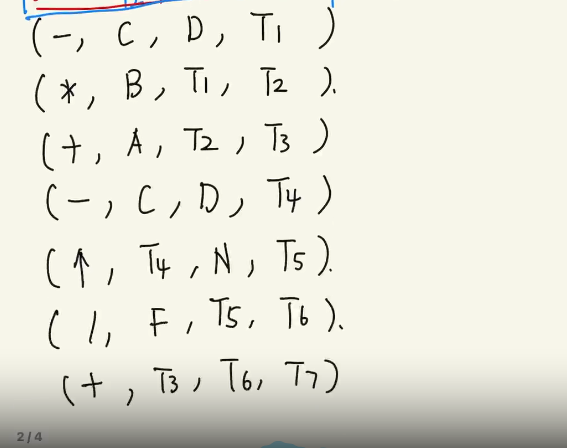 (-, C, D, T1 )
(*, B, T1, T2 ).
(+, A, T2, T3 )
(-, C, D, T4 )
(↑, T4, N, T5 ).
( /, F, T5, T6 ).
(+, T3, T6, T7 )
2/4